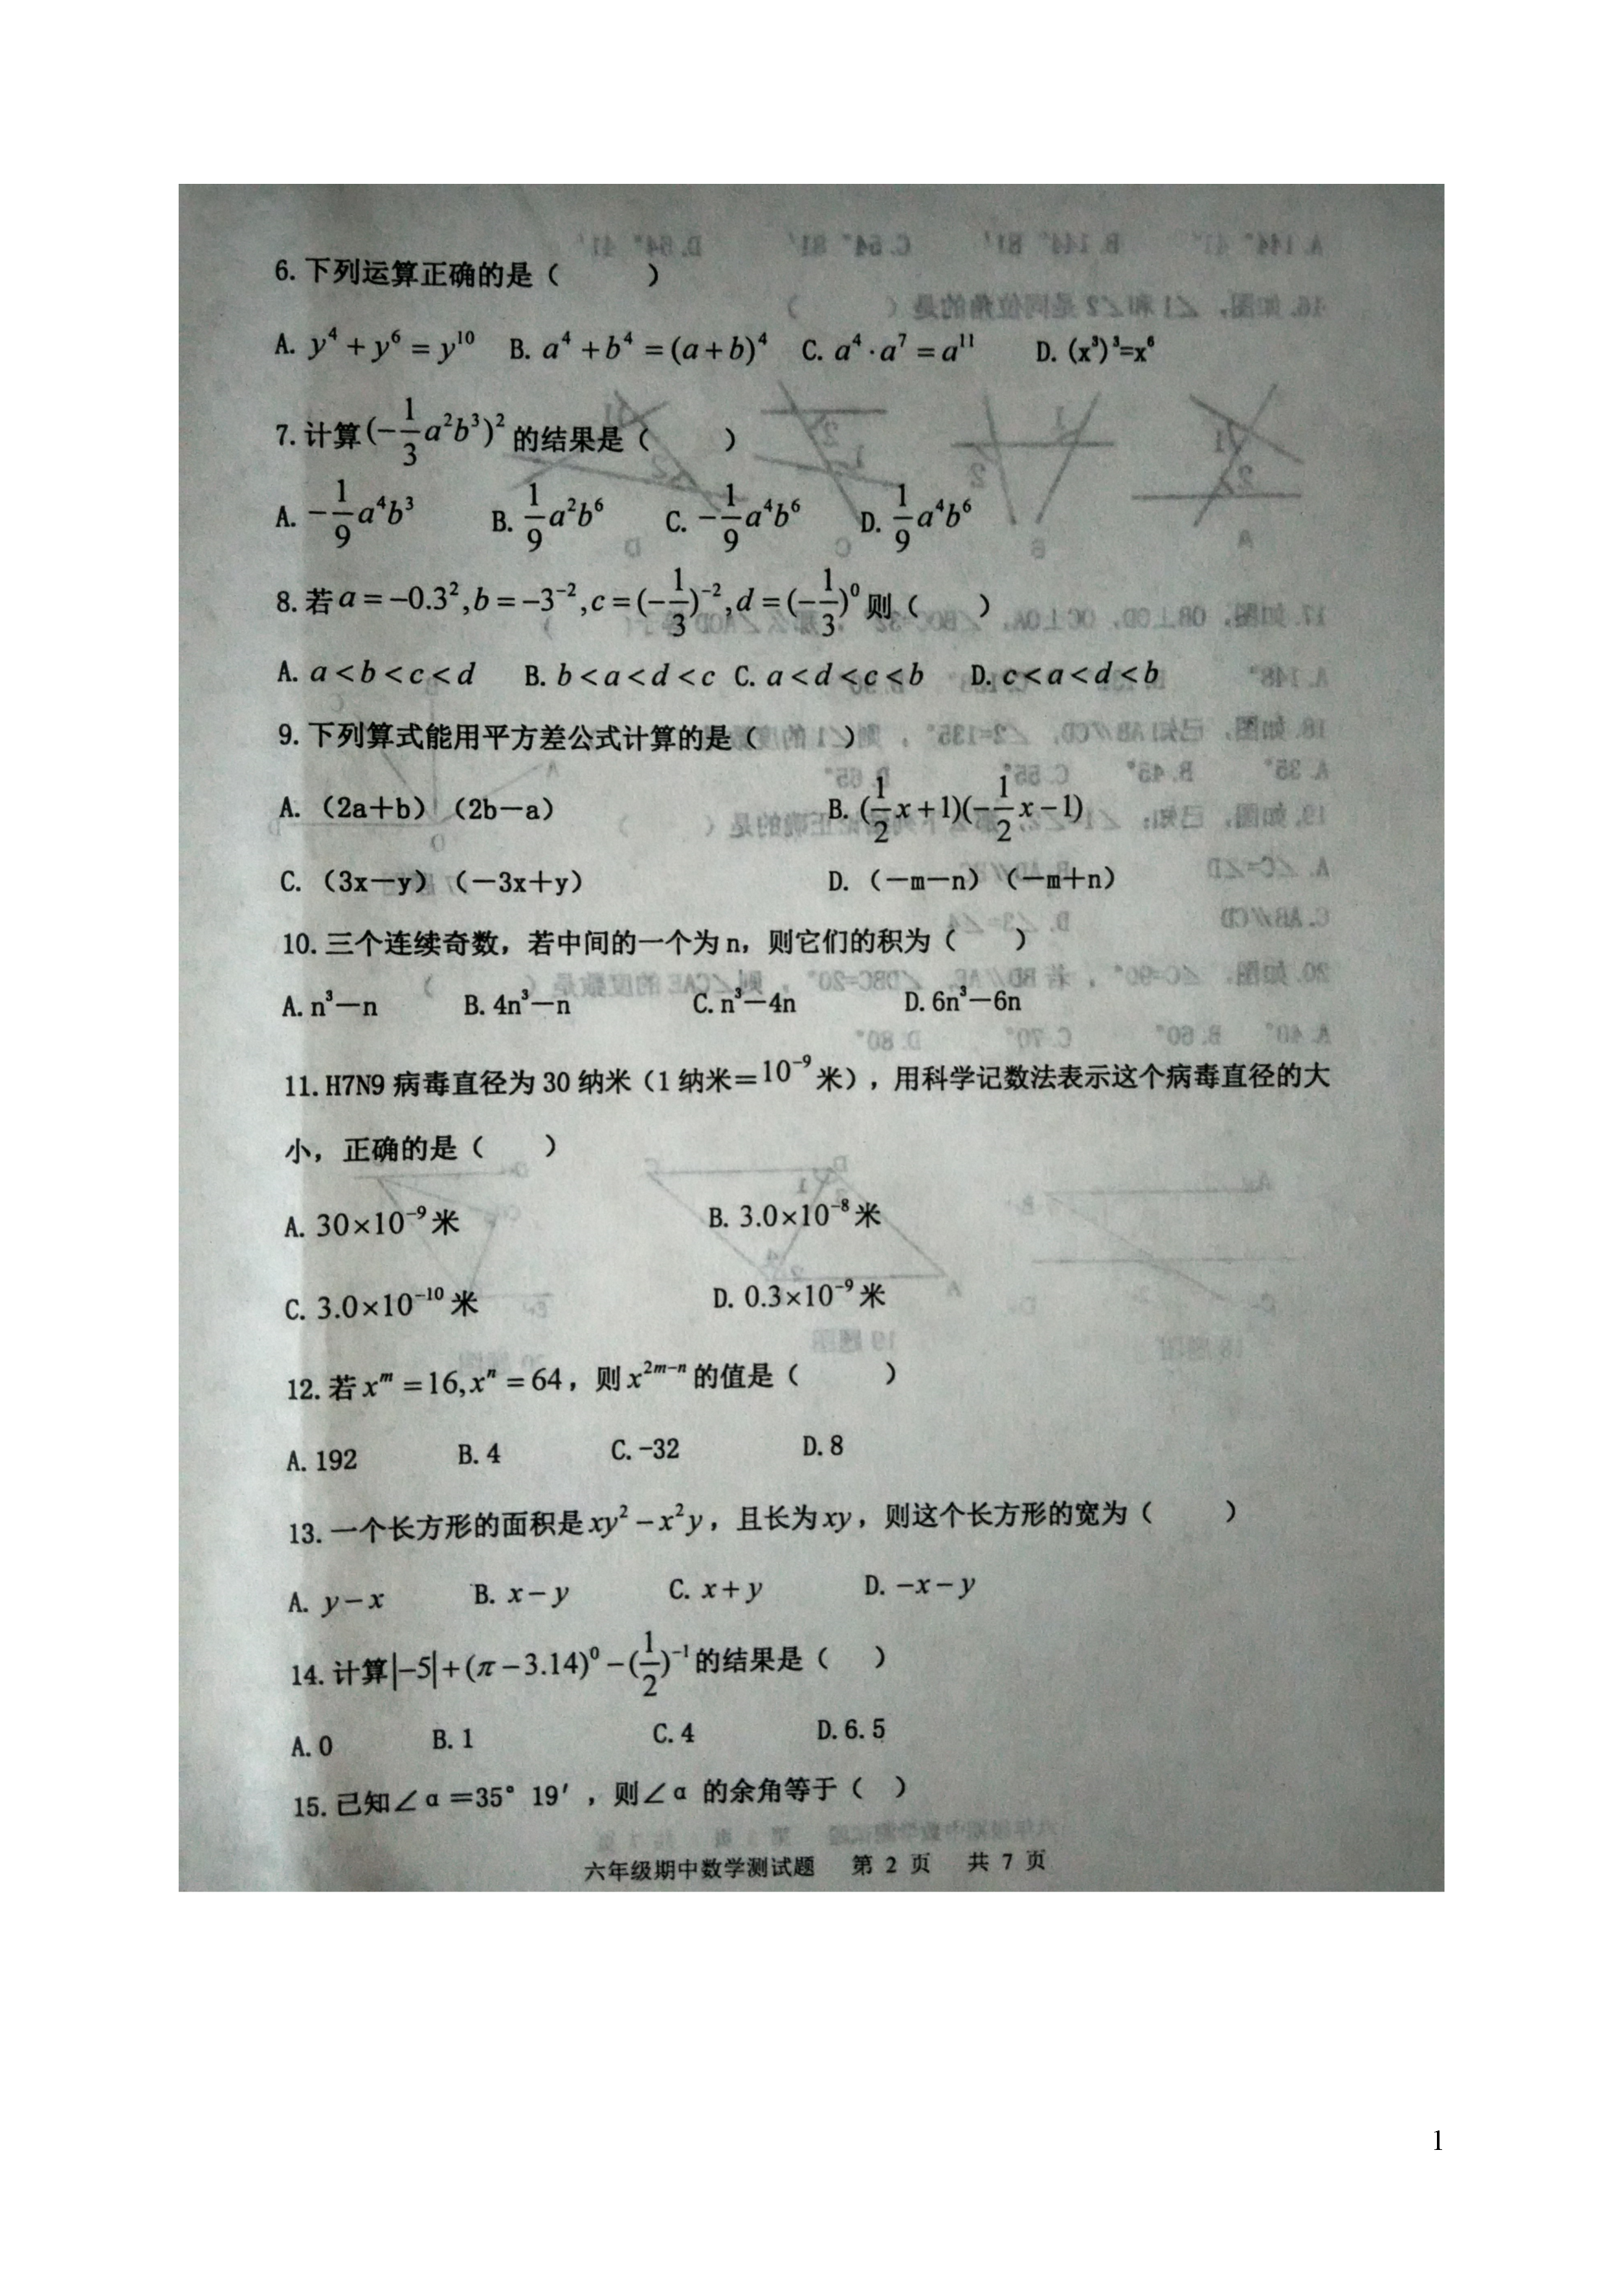 6.下列运算正确的是（　　）
A. y⁴+y⁶=y¹⁰ B. a⁴+b⁴=(a+b)⁴ C. a⁴·a⁷=a¹¹ D. (x³)³=x⁶
7.计算(-1/3 a²b³)²的结果是（　　）
A. -1/9 a⁴b³ B. 1/9 a²b⁶ C. -1/9 a⁴b⁶ D. 1/9 a⁴b⁶
8.若a=-0.3²,b=-3⁻²,c=(-1/3)⁻²,d=(-1/3)⁰则（　　）
A. a<b<c<d B. b<a<d<c C. a<d<c<b D. c<a<d<b
9.下列算式能用平方差公式计算的是（　　）
A.（2a＋b）（2b－a） B. (1/2 x+1)(-1/2 x-1)
C.（3x－y）（－3x＋y） D.（－m－n）（－m＋n）
10.三个连续奇数，若中间的一个为n，则它们的积为（　　）
A. n³－n B. 4n³－n C. n³－4n D. 6n³－6n
11. H7N9病毒直径为30纳米（1纳米＝10⁻⁹米），用科学记数法表示这个病毒直径的大
小，正确的是（　　）
A. 30×10⁻⁹米 B. 3.0×10⁻⁸米
C. 3.0×10⁻¹⁰米 D. 0.3×10⁻⁹米
12.若xᵐ=16,xⁿ=64，则x²ᵐ⁻ⁿ的值是（　　）
A. 192 B. 4 C. -32 D. 8
13.一个长方形的面积是xy²-x²y，且长为xy，则这个长方形的宽为（　　）
A. y-x B. x-y C. x+y D. -x-y
14.计算|-5|+(π-3.14)⁰-(1/2)⁻¹的结果是（　　）
A. 0 B. 1 C. 4 D. 6.5
15.已知∠α＝35°19′，则∠α的余角等于（　　）
六年级期中数学测试题 第 2 页 共 7 页
1